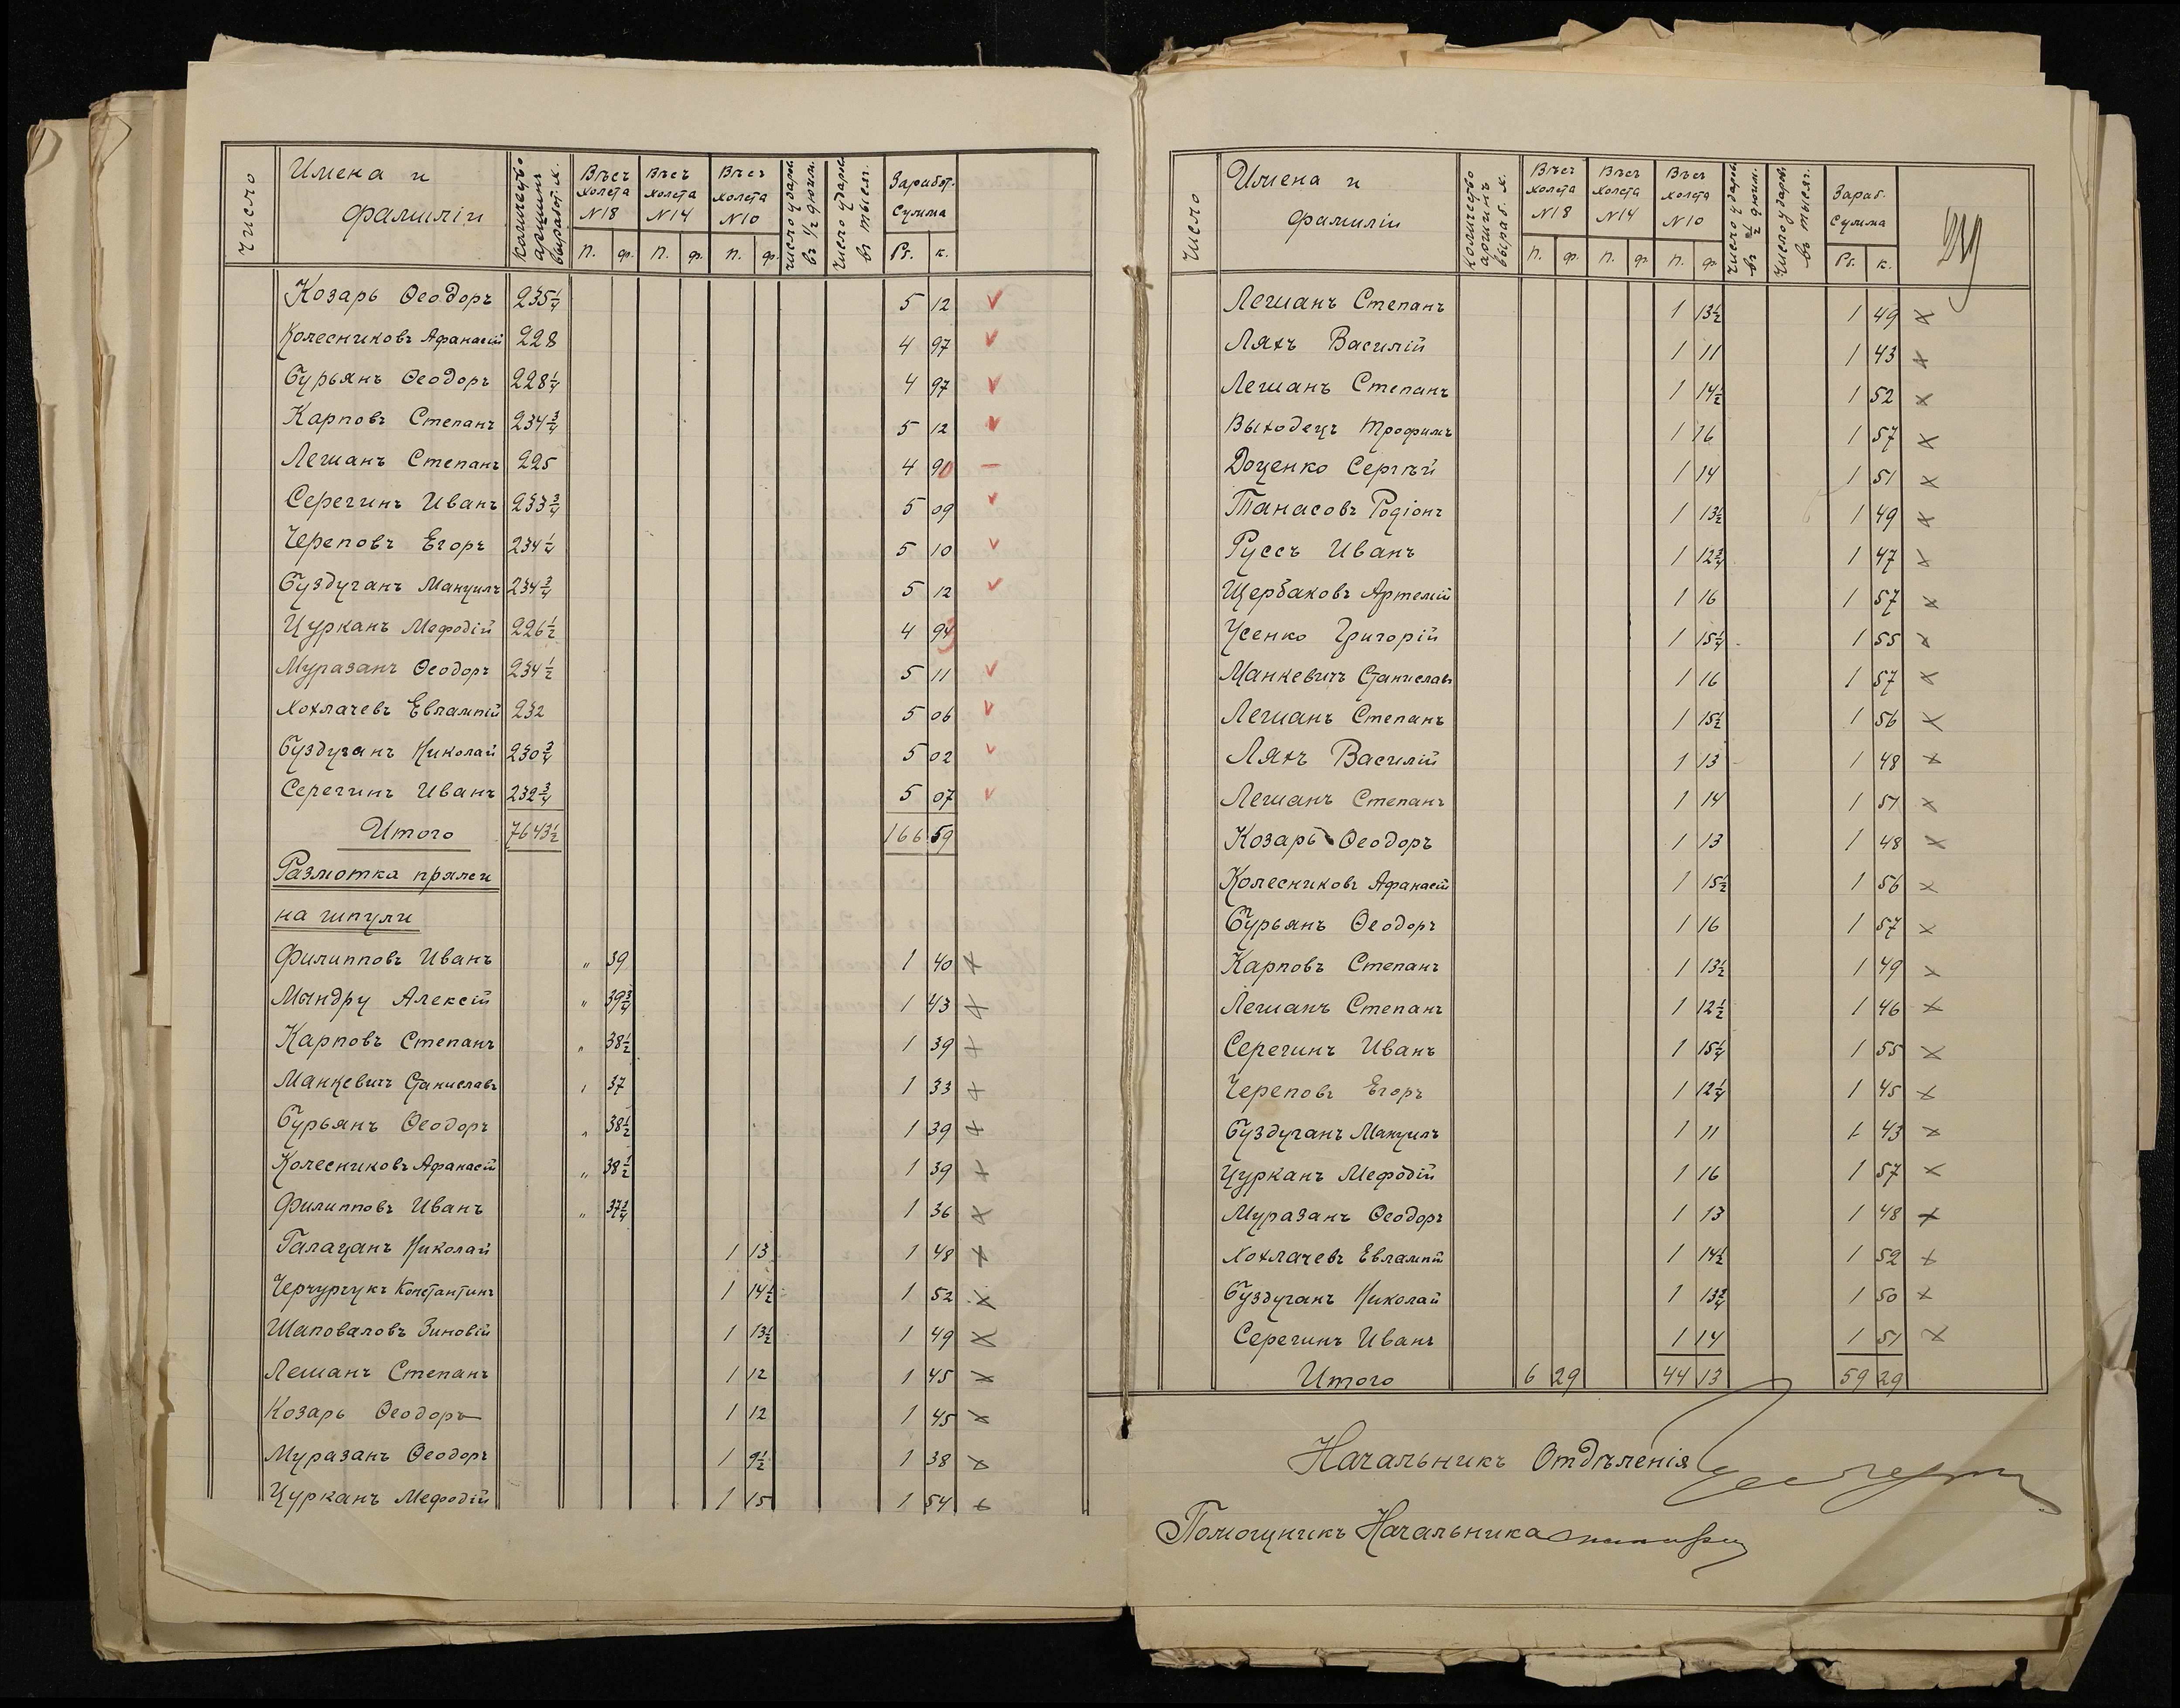 Число
Имена и фамилии
Количество аршинъ выработ. х.
Вѣсъ холста N18
Вѣсъ холста N14
Вѣсъ холста N10
Число ударов въ 1/2 дюйм.
Число ударов въ тысяч.
Заработ. сумма
п. ф. п. ф. п. ф. Рб. к.
Козарь Ѳеодоръ 235 1/4 5 12
Колесниковъ Афанасій 228 4 97
Бурьянъ Ѳеодоръ 228 1/4 4 97
Карповъ Степанъ 234 3/4 5 12
Лешанъ Степанъ 225 4 90
Серегинъ Иванъ 233 3/4 5 09
Череповъ Егоръ 234 1/4 5 10
Буздуганъ Мануилъ 234 3/4 5 12
Цурканъ Мефодій 226 1/2 4 94
Муразанъ Ѳеодоръ 234 1/2 5 11
Хохлачевъ Евлампій 232 5 06
Буздуганъ Николай 230 3/4 5 02
Серегинъ Иванъ 232 3/4 5 07
Итого 7643 1/2 166 59
Размотка пряжи
на шпули
Филипповъ Иванъ " 39 1 40
Мындру Алексій " 39 3/4 1 43
Карповъ Степанъ " 38 1/2 1 39
Манкевичъ Станиславъ " 37 1 33
Бурьянъ Ѳеодоръ " 38 1/2 1 39
Колесниковъ Афанасій " 38 1/2 1 39
Филипповъ Иванъ " 37 3/4 1 36
Галацанъ Николай 1 13 1 48
Черчурчукъ Константинъ 1 14 1/2 1 52
Шаповаловъ Зиновій 1 13 1/2 1 49
Лешанъ Степанъ 1 12 1 45
Козарь Ѳеодоръ 1 12 1 45
Муразанъ Ѳеодоръ 1 9 1/2 1 38
Цурканъ Мефодій 1 15 1 54
Число
Имена и фамилии
Количество аршинъ выраб. х.
Вѣсъ холста N18
Вѣсъ холста N14
Вѣсъ холста N10
Число ударов въ 1/2 дюйм.
Число ударов. въ тысяч.
Зараб. сумма
п. ф. п. ф. п. ф. Рб. к.
Лешанъ Степанъ 1 13 1/2 1 49
Ляхъ Василій 1 11 1 43
Лешанъ Степанъ 1 14 1/2 1 52
Выходецъ Трофимъ 1 16 1 57
Доценко Сергѣй 1 14 1 51
Танасовъ Родіонъ 1 13 1/2 1 49
Руссъ Иванъ 1 12 3/4 1 47
Щербаковъ Артемій 1 16 1 57
Усенко Григорій 1 15 1/4 1 55
Манкевичъ Станиславъ 1 16 1 57
Лешанъ Степанъ 1 15 1/2 1 56
Ляхъ Василій 1 13 1 48
Лешанъ Степанъ 1 14 1 51
Козарь Ѳеодоръ 1 13 1 48
Колесниковъ Афанасій 1 15 1/2 1 56
Бурьянъ Ѳеодоръ 1 16 1 57
Карповъ Степанъ 1 13 1/2 1 49
Лешанъ Степанъ 1 12 1/2 1 46
Серегинъ Иванъ 1 15 1/4 1 55
Череповъ Егоръ 1 12 1/4 1 45
Буздуганъ Мануилъ 1 11 1 43
Цурканъ Мефодій 1 16 1 57
Муразанъ Ѳеодоръ 1 13 1 48
Хохлачевъ Евлампій 1 14 1/2 1 52
Буздуганъ Николай 1 13 3/4 1 50
Серегинъ Иванъ 1 14 1 51
Итого 6 29 44 13 59 29
Начальникъ Отдѣленія
Помощникъ Начальника